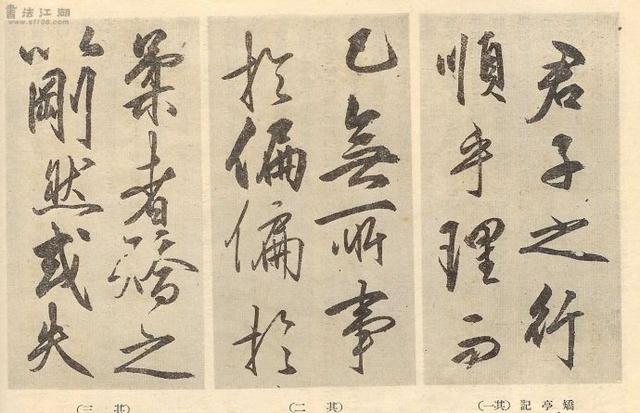 書法江湖
www.sf108.com
君子之行
順乎理而
已無所事
於偏偏於
柔者矯之
以剛然或失
矯亭記(其一)
(其二)
(其三)